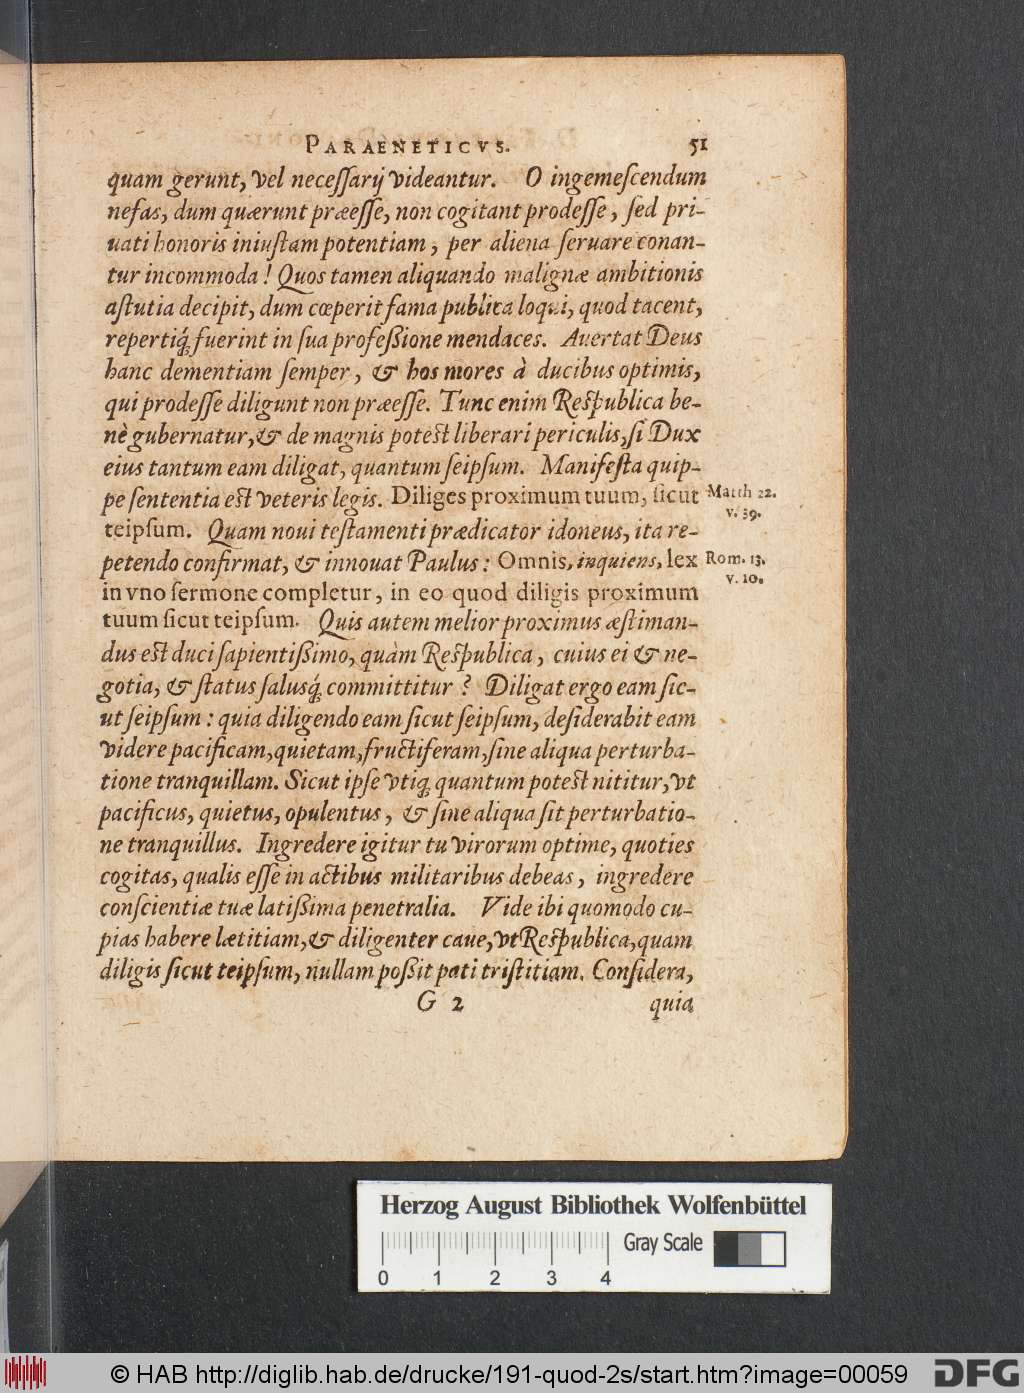 PARAENETICVS. 51
quam gerunt, vel neceſſarij videantur. O ingemeſcendum
nefas, dum quærunt præeſſe, non cogitant prodeſſe, ſed pri-
uati honoris iniuſtam potentiam, per aliena ſeruare conan-
tur incommoda! Quos tamen aliquando malignæ ambitionis
aſtutia decipit, dum cœperit fama publica loqui, quod tacent,
repertiq́; fuerint in ſua profeßione mendaces. Auertat Deus
hanc dementiam ſemper, & hos mores à ducibus optimis,
qui prodeſſe diligunt non præeſſe. Tunc enim Reſpublica be-
nè gubernatur, & de magnis poteſt liberari periculis, ſi Dux
eius tantum eam diligat, quantum ſeipſum. Manifeſta quip-
pe ſententia eſt veteris legis. Diliges proximum tuum, ſicut Matth 22.
v. 39.
teipſum. Quam noui teſtamenti prædicator idoneus, ita re-
petendo confirmat, & innouat Paulus: Omnis, inquiens, lex Rom. 13.
v. 10.
in vno ſermone completur, in eo quod diligis proximum
tuum ſicut teipſum. Quis autem melior proximus æſtiman-
dus eſt duci ſapientißimo, quàm Reſpublica, cuius ei & ne-
gotia, & ſtatus ſalusq́; committitur? Diligat ergo eam ſic-
ut ſeipſum: quia diligendo eam ſicut ſeipſum, deſiderabit eam
videre pacificam, quietam, fructiferam, ſine aliqua perturba-
tione tranquillam. Sicut ipſe vtiq; quantum poteſt nititur, vt
pacificus, quietus, opulentus, & ſine aliqua ſit perturbatio-
ne tranquillus. Ingredere igitur tu virorum optime, quoties
cogitas, qualis eſſe in actibus militaribus debeas, ingredere
conſcientiæ tuæ latißima penetralia. Vide ibi quomodo cu-
pias habere lætitiam, & diligenter caue, vt Reſpublica, quam
diligis ſicut teipſum, nullam poßit pati triſtitiam. Conſidera,
G 2 quia
Herzog August Bibliothek Wolfenbüttel
Gray Scale
0 1 2 3 4
© HAB http://diglib.hab.de/drucke/191-quod-2s/start.htm?image=00059 DFG